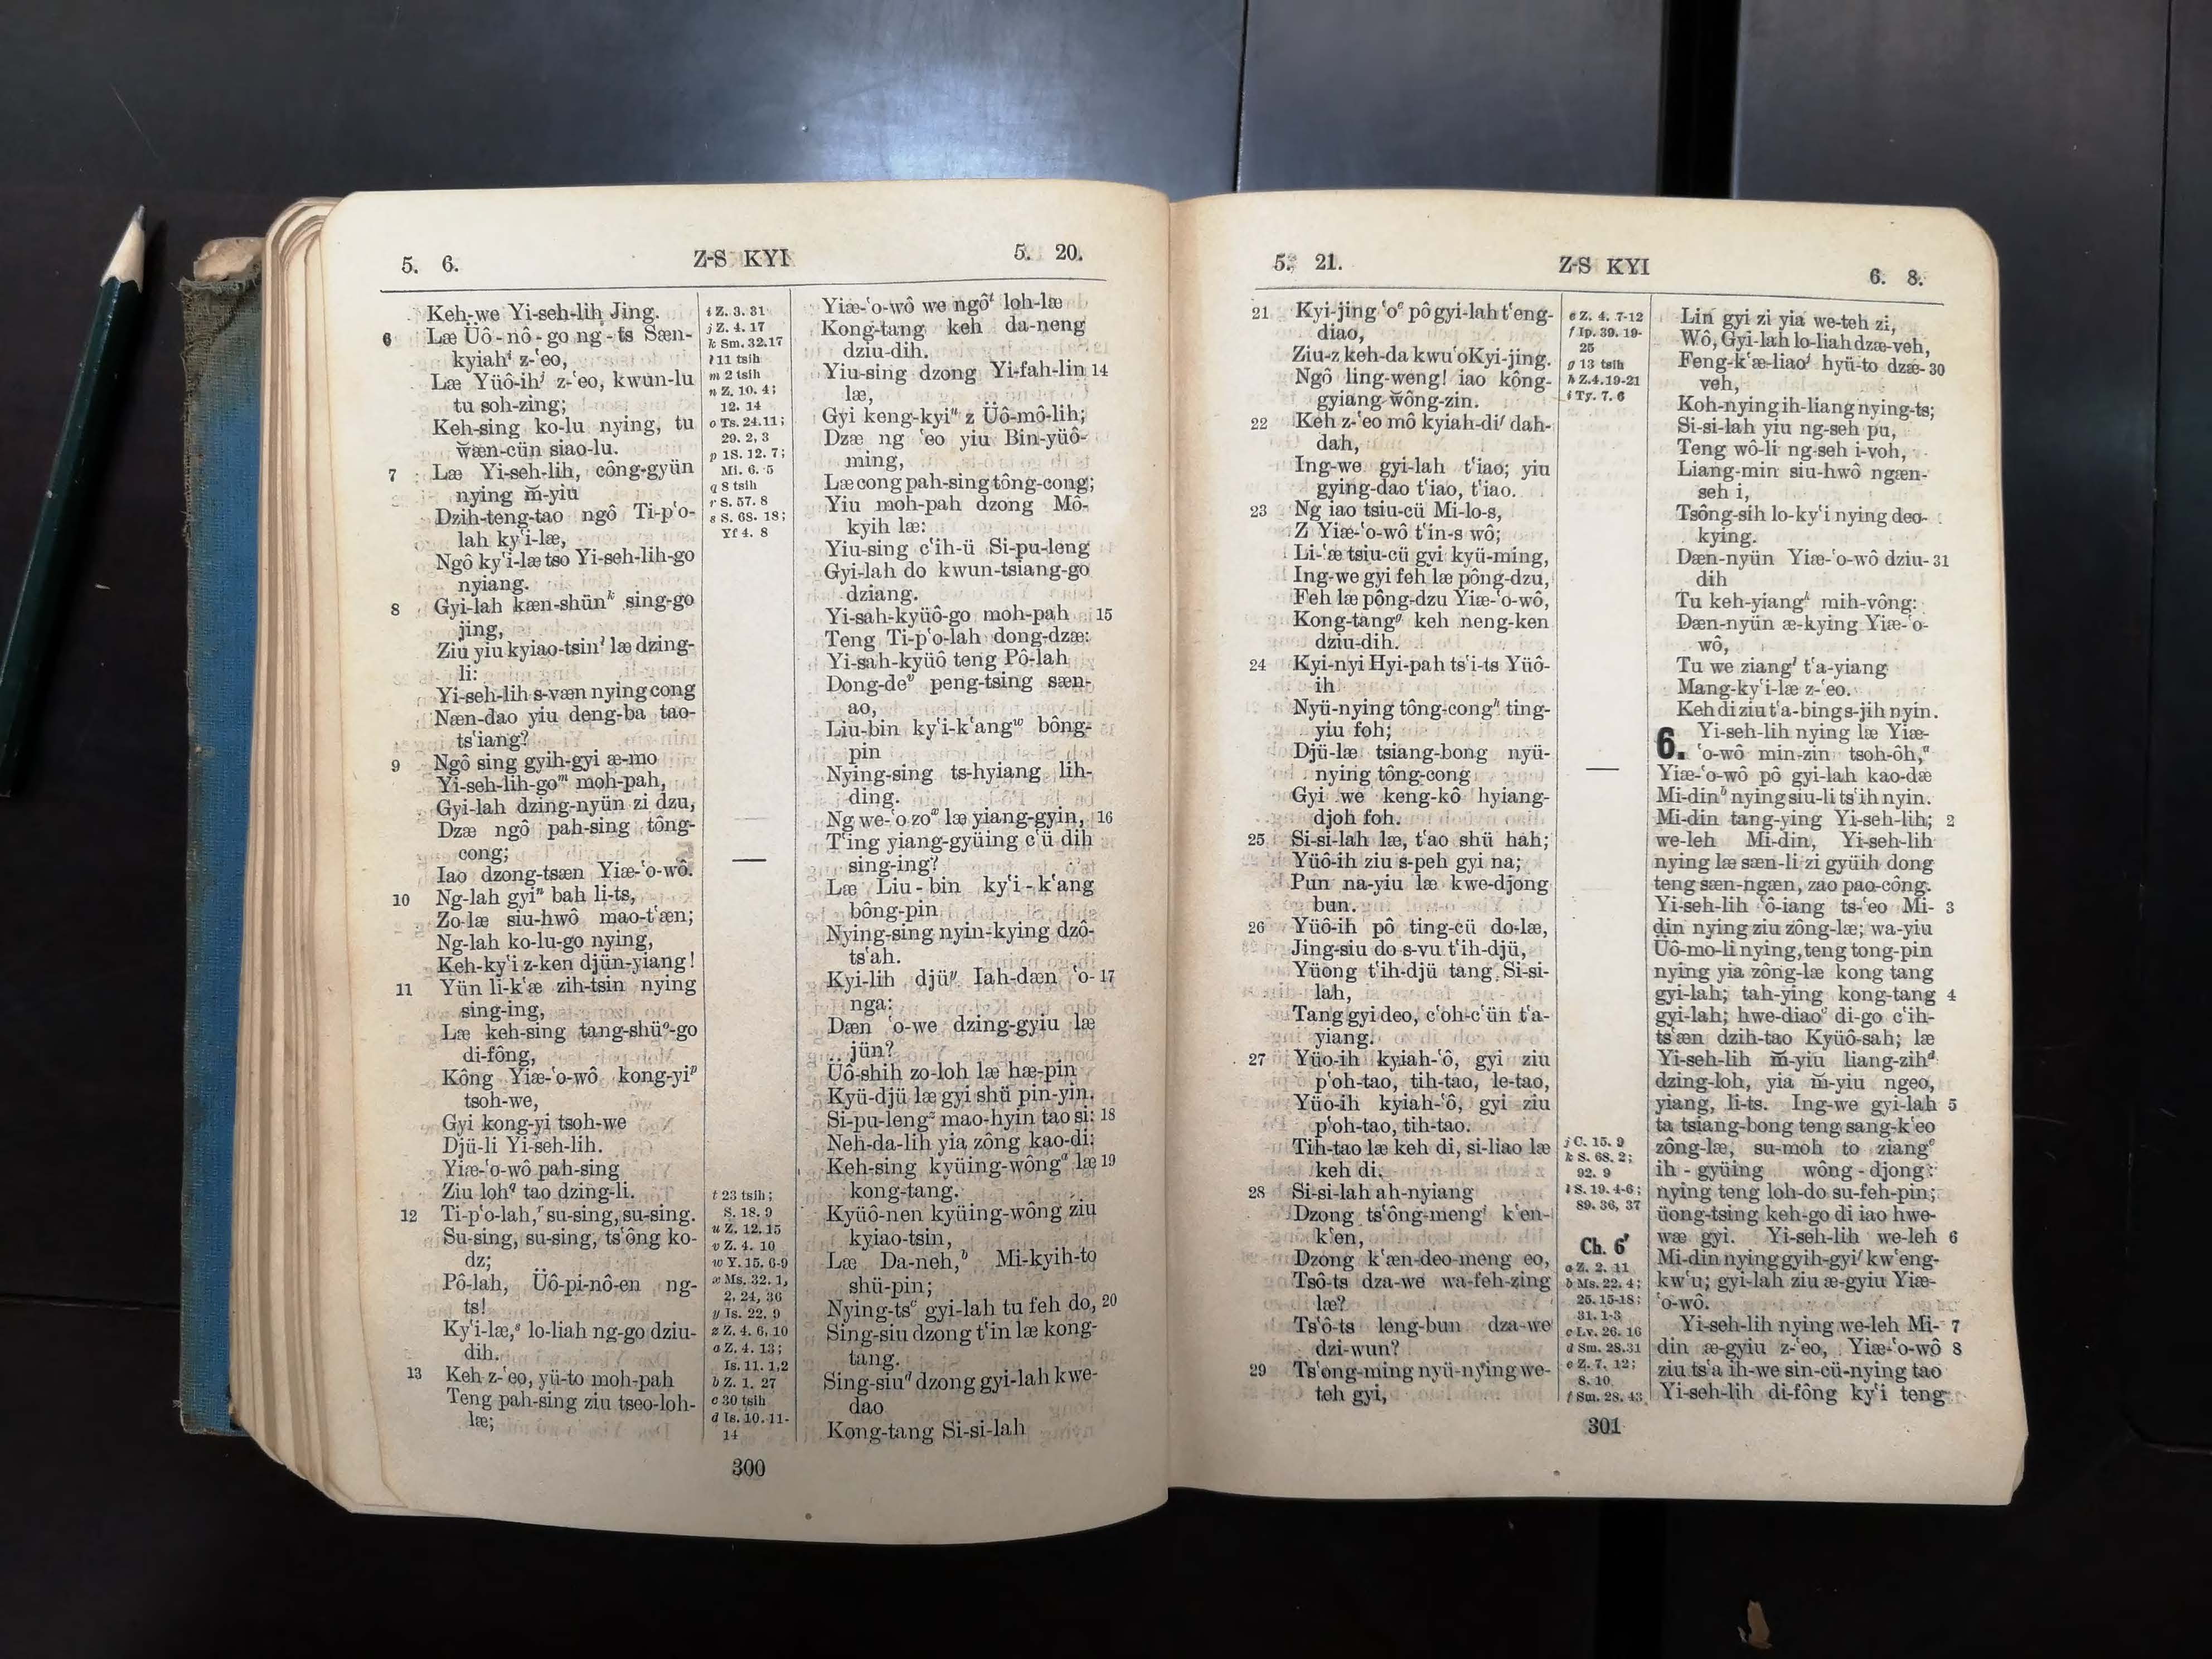 5. 6.
Z-S KYI
5. 20.
Keh-we Yi-seh-lih Jing.
6 Læ Üô-nô-go ng-ts Sæn-
kyiahⁱ z-ʻeo,
Læ Yüô-ihʲ z-ʻeo, kwun-lu
tu soh-zing;
Keh-sing ko-lu nying, tu
w̆æn-cün siao-lu.
7 Læ Yi-seh-lih, công-gyün
nying m̆-yiu
Dzih-teng-tao ngô Ti-pʻo-
lah kyʻi-læ,
Ngô kyʻi-læ tso Yi-seh-lih-go
nyiang.
8 Gyi-lah kæn-shünᵏ sing-go
jing,
Ziu yiu kyiao-tsinˡ læ dzing-
li:
Yi-seh-lih s-væn nying cong
Næn-dao yiu deng-ba tao-
tsʻiang?
9 Ngô sing gyih-gyi æ-mo
Yi-seh-lih-goᵐ moh-pah,
Gyi-lah dzing-nyün zi dzu,
Dzæ ngô pah-sing tông-
cong;
Iao dzong-tsæn Yiæ-ʻo-wô.
10 Ng-lah gyiⁿ bah li-ts,
Zo-læ siu-hwô mao-tʻæn;
Ng-lah ko-lu-go nying,
Keh-kyʻi z-ken djün-yiang!
11 Yün li-kʻæ zih-tsin nying
sing-ing,
Læ keh-sing tang-shüᵒ-go
di-fông,
Kông Yiæ-ʻo-wô kong-yiᵖ
tsoh-we,
Gyi kong-yi tsoh-we
Djü-li Yi-seh-lih.
Yiæ-ʻo-wô pah-sing
Ziu loh^q tao dzing-li.
12 Ti-pʻo-lah,ʳ su-sing, su-sing.
Su-sing, su-sing, tsʻông ko-
dz;
Pô-lah, Üô-pi-nô-en ng-
ts!
Kyʻi-læ,ˢ lo-liah ng-go dziu-
dih.
13 Keh z-ʻeo, yü-to moh-pah
Teng pah-sing ziu tseo-loh-
læ;
i Z. 3. 31
j Z. 4. 17
k Sm. 32.17
l 11 tsih
m 2 tsih
n Z. 10. 4;
12. 14
o Ts. 24.11;
29. 2, 3
p 1S. 12. 7;
Mi. 6. 5
q 8 tsih
r S. 57. 8
s S. 68. 18;
Yf 4. 8
t 23 tsih;
S. 18. 9
u Z. 12. 15
v Z. 4. 10
w Y. 15. 6-9
x Ms. 32. 1,
2, 24, 36
y Is. 22. 9
z Z. 4. 6, 10
a Z. 4. 13;
Is. 11. 1,2
b Z. 1. 27
c 30 tsih
d Is. 10. 11-
14
Yiæ-ʻo-wô we ngôᵗ loh-læ
Kong-tang keh da-neng
dziu-dih.
Yiu-sing dzong Yi-fah-lin 14
læ,
Gyi keng-kyiᵘ z Üô-mô-lih;
Dzæ ng ʻeo yiu Bin-yüô-
ming,
Læ cong pah-sing tông-cong;
Yiu moh-pah dzong Mô-
kyih læ:
Yiu-sing cʻih-ü Si-pu-leng
Gyi-lah do kwun-tsiang-go
dziang.
Yi-sah-kyüô-go moh-pah 15
Teng Ti-pʻo-lah dong-dzæ:
Yi-sah-kyüô teng Pô-lah
Dong-deᵛ peng-tsing sæn-
ao,
Liu-bin kyʻi-kʻangʷ bông-
pin
Nying-sing ts-hyiang lih-
ding.
Ng we-ʻo zoˣ læ yiang-gyin, 16
Tʻing yiang-gyüing cʻü dih
sing-ing?
Læ Liu-bin kyʻi-kʻang
bông-pin
Nying-sing nyin-kying dzô-
tsʻah.
Kyi-lih djüʸ Iah-dæn ʻo- 17
nga:
Dæn ʻo-we dzing-gyiu læ
jün?
Üô-shih zo-loh læ hæ-pin
Kyü-djü læ gyi shü pin-yin.
Si-pu-lengᶻ mao-hyin tao si: 18
Neh-da-lih yia zông kao-di;
Keh-sing kyüing-wôngᵃ læ 19
kong-tang.
Kyüô-nen kyüing-wông ziu
kyiao-tsin,
Læ Da-neh,ᵇ Mi-kyih-to
shü-pin;
Nying-tsᶜ gyi-lah tu feh do, 20
Sing-siu dzong tʻin læ kong-
tang.
Sing-siuᵈ dzong gyi-lah kwe-
dao
Kong-tang Si-si-lah
300
5. 21.
Z-S KYI
6. 8.
21 Kyi-jing ʻoᵉ pô gyi-lah tʻeng-
diao,
Ziu-z keh-da kwuʻo Kyi-jing.
Ngô ling-weng! iao kông-
gyiang w̆ông-zin.
22 Keh z-ʻeo mô kyiah-diᶠ dah-
dah,
Ing-we gyi-lah tʻiao; yiu
gying-dao tʻiao, tʻiao.
23 Ng iao tsiu-cü Mi-lo-s,
Z Yiæ-ʻo-wô tʻin-s wô;
Li-ʻæ tsiu-cü gyi kyü-ming,
Ing-we gyi feh læ pông-dzu,
Feh læ pông-dzu Yiæ-ʻo-wô,
Kong-tangᵍ keh neng-ken
dziu-dih.
24 Kyi-nyi Hyi-pah tsʻi-ts Yüô-
ih
Nyü-nying tông-congʰ ting-
yiu foh;
Djü-læ tsiang-bong nyü-
nying tông-cong
Gyi we keng-kô hyiang-
djoh foh.
25 Si-si-lah læ, tʻao shü hah;
Yüô-ih ziu s-peh gyi na;
Pun na-yiu læ kwe-djong
bun.
26 Yüô-ih pô ting-cü do-læ,
Jing-siu do s-vu tʻih-djü,
Yüong tʻih-djü tang Si-si-
lah,
Tang gyi deo, cʻoh-cʻün tʻa-
yiang.
27 Yüo-ih kyiah-ʻô, gyi ziu
pʻoh-tao, tih-tao, le-tao,
Yüo-ih kyiah-ʻô, gyi ziu
pʻoh-tao, tih-tao.
Tih-tao læ keh di, si-liao læ
keh di.
28 Si-si-lah ah-nyiang
Dzong tsʻông-mengⁱ kʻen-
kʻen,
Dzong kʻæn-deo-meng eo,
Tsô-ts dza-we wa-feh-zing
læ?
Tsʻô-ts leng-bun dza-we
dzi-wun?
29 Tsʻong-ming nyü-nying we-
teh gyi,
e Z. 4. 7-12
f Ip. 39. 19-
25
g 13 tsih
h Z.4.19-21
i Ty. 7. 6
j C. 15. 9
k S. 68. 2;
92. 9
l S. 19. 4-6;
89. 36, 37
Ch. 6
a Z. 2. 11
b Ms. 22. 4;
25. 15-18;
31. 1-3
c Lv. 26. 16
d Sm. 28.31
e Z. 7. 12;
8. 10
f Sm. 28. 43
Lin gyi zi yia we-teh zi,
Wô, Gyi-lah lo-liah dzæ-veh,
Feng-kʻæ-liaoʲ hyü-to dzæ- 30
veh,
Koh-nying ih-liang nying-ts;
Si-si-lah yiu ng-seh pu,
Teng wô-li ng-seh i-voh,
Liang-min siu-hwô ngæn-
seh i,
Tsông-sih lo-kyʻi nying deo-
kying.
Dæn-nyün Yiæ-ʻo-wô dziu- 31
dih
Tu keh-yiangᵏ mih-vông:
Dæn-nyün æ-kying Yiæ-ʻo-
wô,
Tu we ziangˡ tʻa-yiang
Mang-kyʻi-læ z-ʻeo.
Keh di ziu tʻa-bing s-jih nyin.
6. Yi-seh-lih nying læ Yiæ-
ʻo-wô min-zin tsoh-ôh,ᵃ
Yiæ-ʻo-wô pô gyi-lah kao-dæ
Mi-dinᵇ nying siu-li tsʻih nyin.
Mi-din tang-ying Yi-seh-lih; 2
we-leh Mi-din, Yi-seh-lih
nying læ sæn-li zi gyüih dong
teng sæn-ngæn, zao pao-công.
Yi-seh-lih ʻô-iang ts-ʻeo Mi- 3
din nying ziu zông-læ; wa-yiu
Üô-mo-li nying, teng tong-pin
nying yia zông-læ kong tang
gyi-lah; tah-ying kong-tang 4
gyi-lah; hwe-diaoᶜ di-go cʻih-
tsʻæn dzih-tao Kyüô-sah; læ
Yi-seh-lih m̆-yiu liang-zihᵈ
dzing-loh, yia m̆-yiu ngeo,
yiang, li-ts. Ing-we gyi-lah 5
ta tsiang-bong teng sang-kʻeo
zông-læ, su-moh to ziangᵉ
ih-gyüing wông-djong:
nying teng loh-do su-feh-pin;
üong-tsing keh-go di iao hwe-
wæ gyi. Yi-seh-lih we-leh 6
Mi-din nying gyih-gyiᶠ kwʻeng-
kwʻu; gyi-lah ziu æ-gyiu Yiæ-
ʻo-wô.
Yi-seh-lih nying we-leh Mi- 7
din æ-gyiu z-ʻeo, Yiæ-ʻo-wô 8
ziu tsʻa ih-we sin-cü-nying tao
Yi-seh-lih di-fông kyʻi teng
301